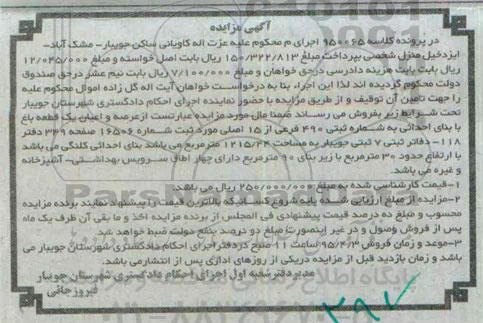 آگهی مزایده
در پرونده کلاسه ۹۵۰۰۶۵ اجرای م محکوم علیه عزت اله کاویانی ساکن جویبار- مشک آباد-
ایزدخیل منزل شخصی بپرداخت مبلغ ۱۵۰/۳۲۲/۸۱۳ ریال بابت اصل خواسته و مبلغ ۱۲/۰۴۵/۰۰۰
ریال بابت بابت هزینه دادرسی درحق خواهان و مبلغ ۷/۱۰۰/۰۰۰ ریال بابت نیم عشر درحق صندوق
دولت محکوم گردیده اند لذا این اجراء بنا به درخواست خواهان آیت اله گل زاده اموال محکوم علیه
را جهت تامین آن توقیف و از طریق مزایده با حضور نماینده اجرای احکام دادگستری شهرستان جویبار
تحت شرایط زیر بفروش می رساند ضمنا مال مورد مزایده عبارتست از عرصه و اعیان یک قطعه باغ
با بنای احداثی به شماره ثبتی ۴۹۰ فرعی از ۱۵ اصلی مورد ثبت شماره ۱۶۵۰۶ صفحه ۳۳۹ دفتر
۱۱۸- دفاتر ثبتی ۷ ثبتی جویبار به مساحت ۱۲۱۵/۴۴ مترمربع می باشد بنای احداثی کلنگی می باشد
با ارتفاع حدود ۳۰ مترمربع با زیر بنای ۹۰ مترمربع دارای چهار اطاق سرویس بهداشتی- آشپزخانه
و غیره می باشد.
۱-قیمت کارشناسی شده به مبلغ ۲۵۰/۰۰۰/۰۰۰ ریال می باشد.
۲-مزایده از مبلغ ارزیابی شده پایه شروع کسانیکه بالاترین قیمت را پیشنهاد نمایند برنده مزایده
محسوب و مبلغ ده درصد قیمت پیشنهادی فی المجلس از برنده مزایده اخذ و ما بقی آن ظرف یک ماه
پس از فروش وصول و در غیر اینصورت مبلغ دو درصد بنفع دولت ضبط خواهد شد.
۳-موعد و زمان فروش ۹۵/۴/۳ ساعت ۱۱ صبح دردفتر اجرای احکام دادگستری شهرستان جویبار می
باشد و زمان بازدید قبل از مزایده دریکی از روزهای اداری پس از انتشار می باشد.
مدیر دفتر شعبه اول اجرای احکام دادگستری شهرستان جویبار
فیروزجائی